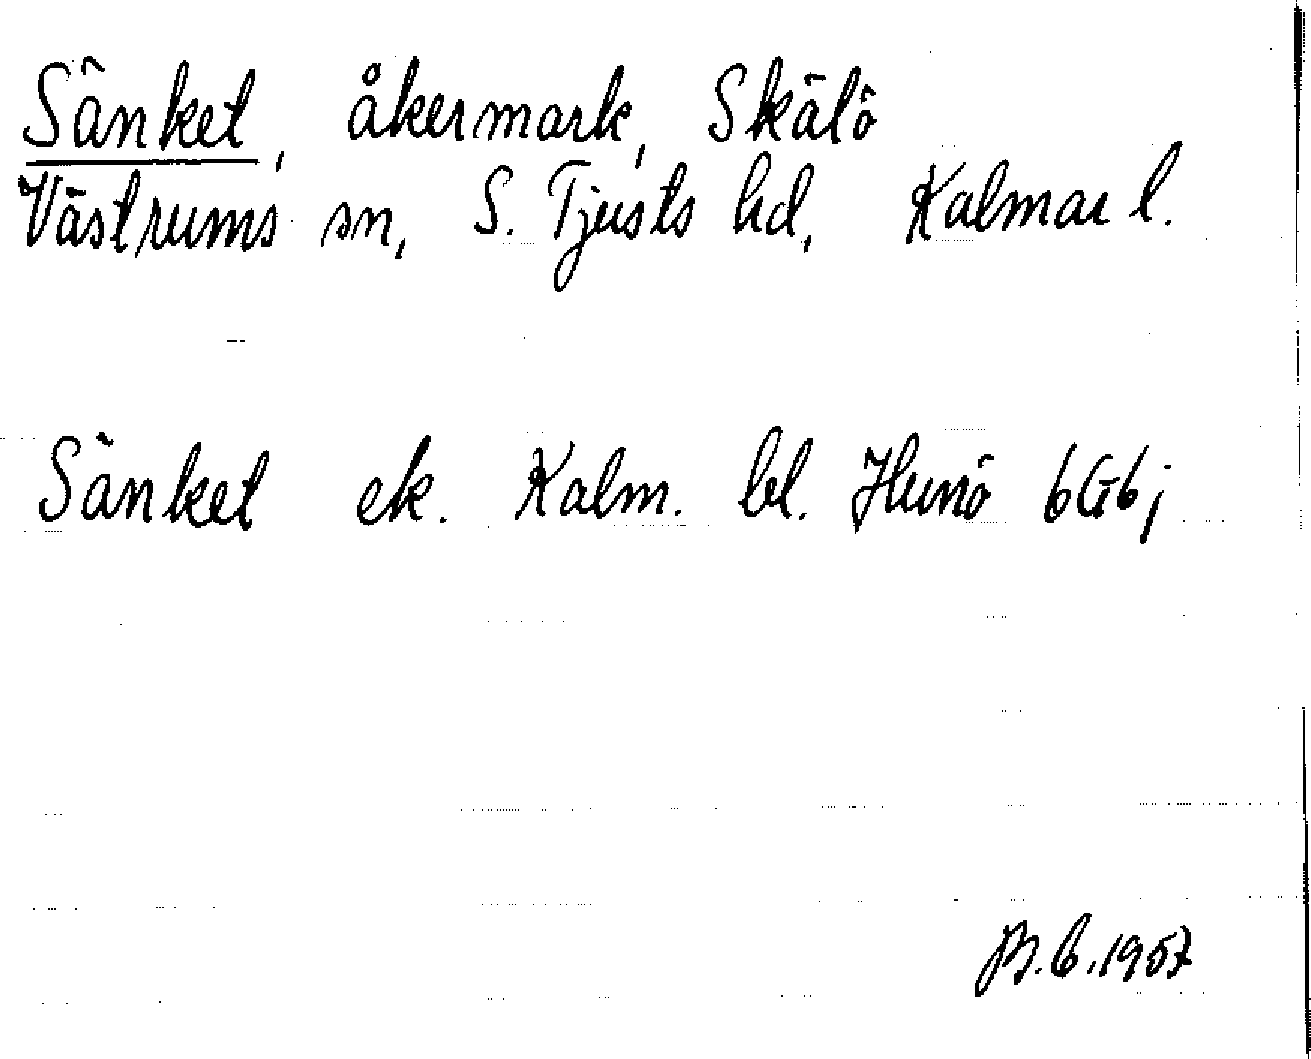 Sänket, åkermark, Skälö
Västrums sn, S. Tjusts hd, Kalmar l.
Sänket ek. Kalm. bl. Hunö 6G6j
B.C.1957